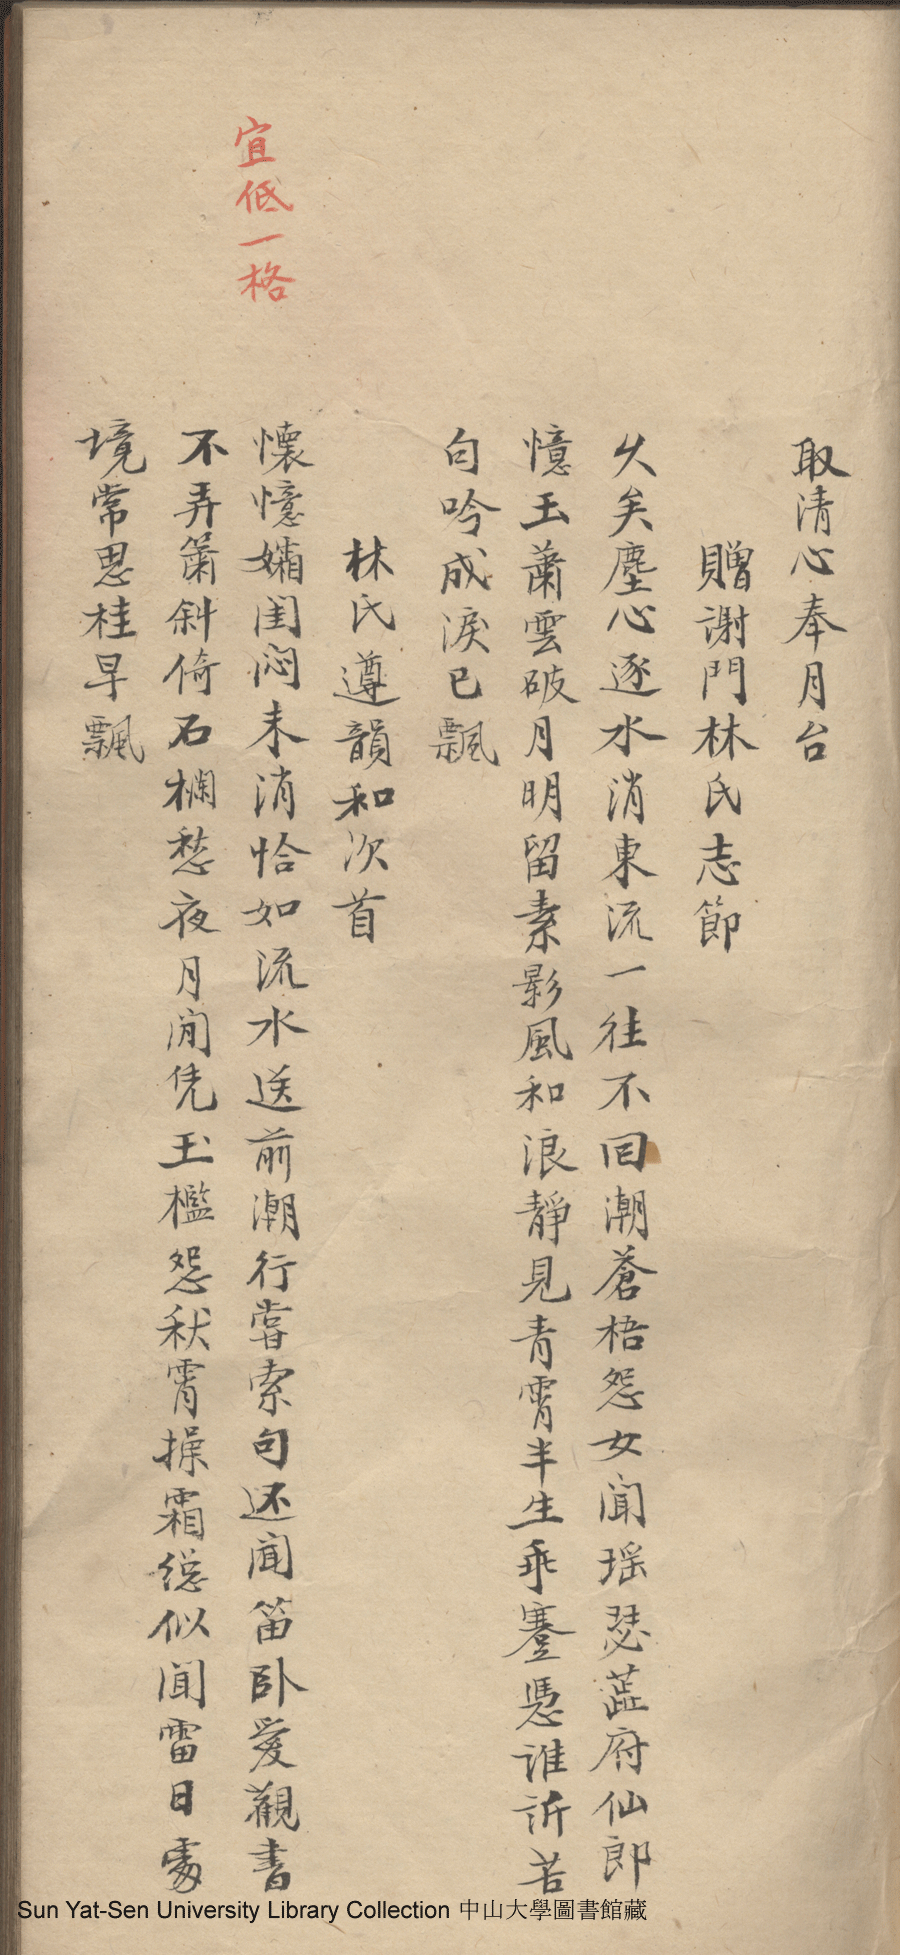 取清心奉月台
贈謝門林氏志節
乆矣塵心逐水消東流一徃不回潮蒼梧怨女闻瑶瑟蕋府仙郎
憶玉蕭雲破月明留素影風和浪靜見青霄半生乖蹇憑誰訴苦
句吟成淚已飄
林氏遵韻和次首
宜低一格
懷憶孀闺闷未消恰如流水送前潮行嘗索句还闻笛卧爱觀書
不弄簫斜倚石欄愁夜月閒凭玉檻怨秋宵操霜總似闻雷日處
境常思桂早飄
Sun Yat-Sen University Library Collection 中山大學圖書館藏